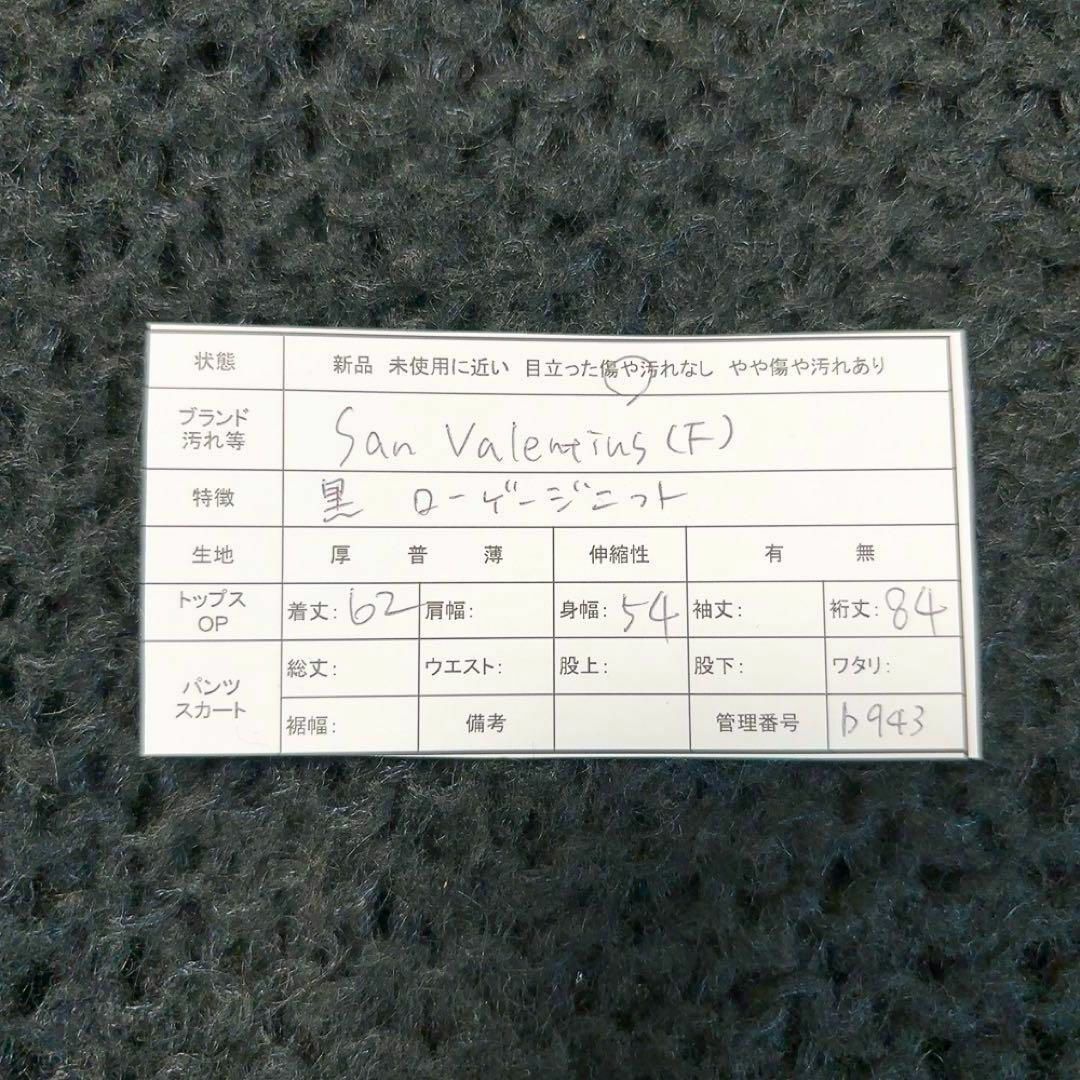 状態 新品 未使用に近い 目立った傷や汚れなし やや傷や汚れあり
ブランド
汚れ等
San Valentius (F)
特徴 黒 ローゲージニット
生地 厚 普 薄 伸縮性 有 無
トップス
OP
着丈: 62 肩幅: 身幅: 54 袖丈: 裄丈: 84
パンツ
スカート
総丈: ウエスト: 股上: 股下: ワタリ:
裾幅: 備考 管理番号 b943